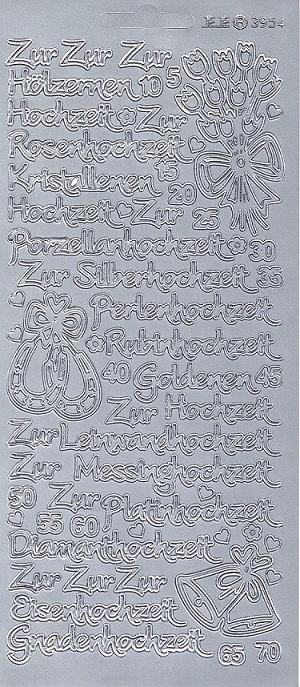 3954
Zur Zur Zur
Hölzernen 10 5
Hochzeit Zur
Rosenhochzeit
Kristallenen 15
20
Hochzeit Zur 25
Porzellanhochzeit 30
Zur Silberhochzeit 35
Perlenhochzeit
Rubinhochzeit
40 Goldenen 45
Zur Hochzeit
Zur Leinwandhochzeit
Zur Messinghochzeit
50 Zur Platinhochzeit
55 60
Diamanthochzeit
Zur Zur Zur
Eisenhochzeit
Gnadenhochzeit 65 70